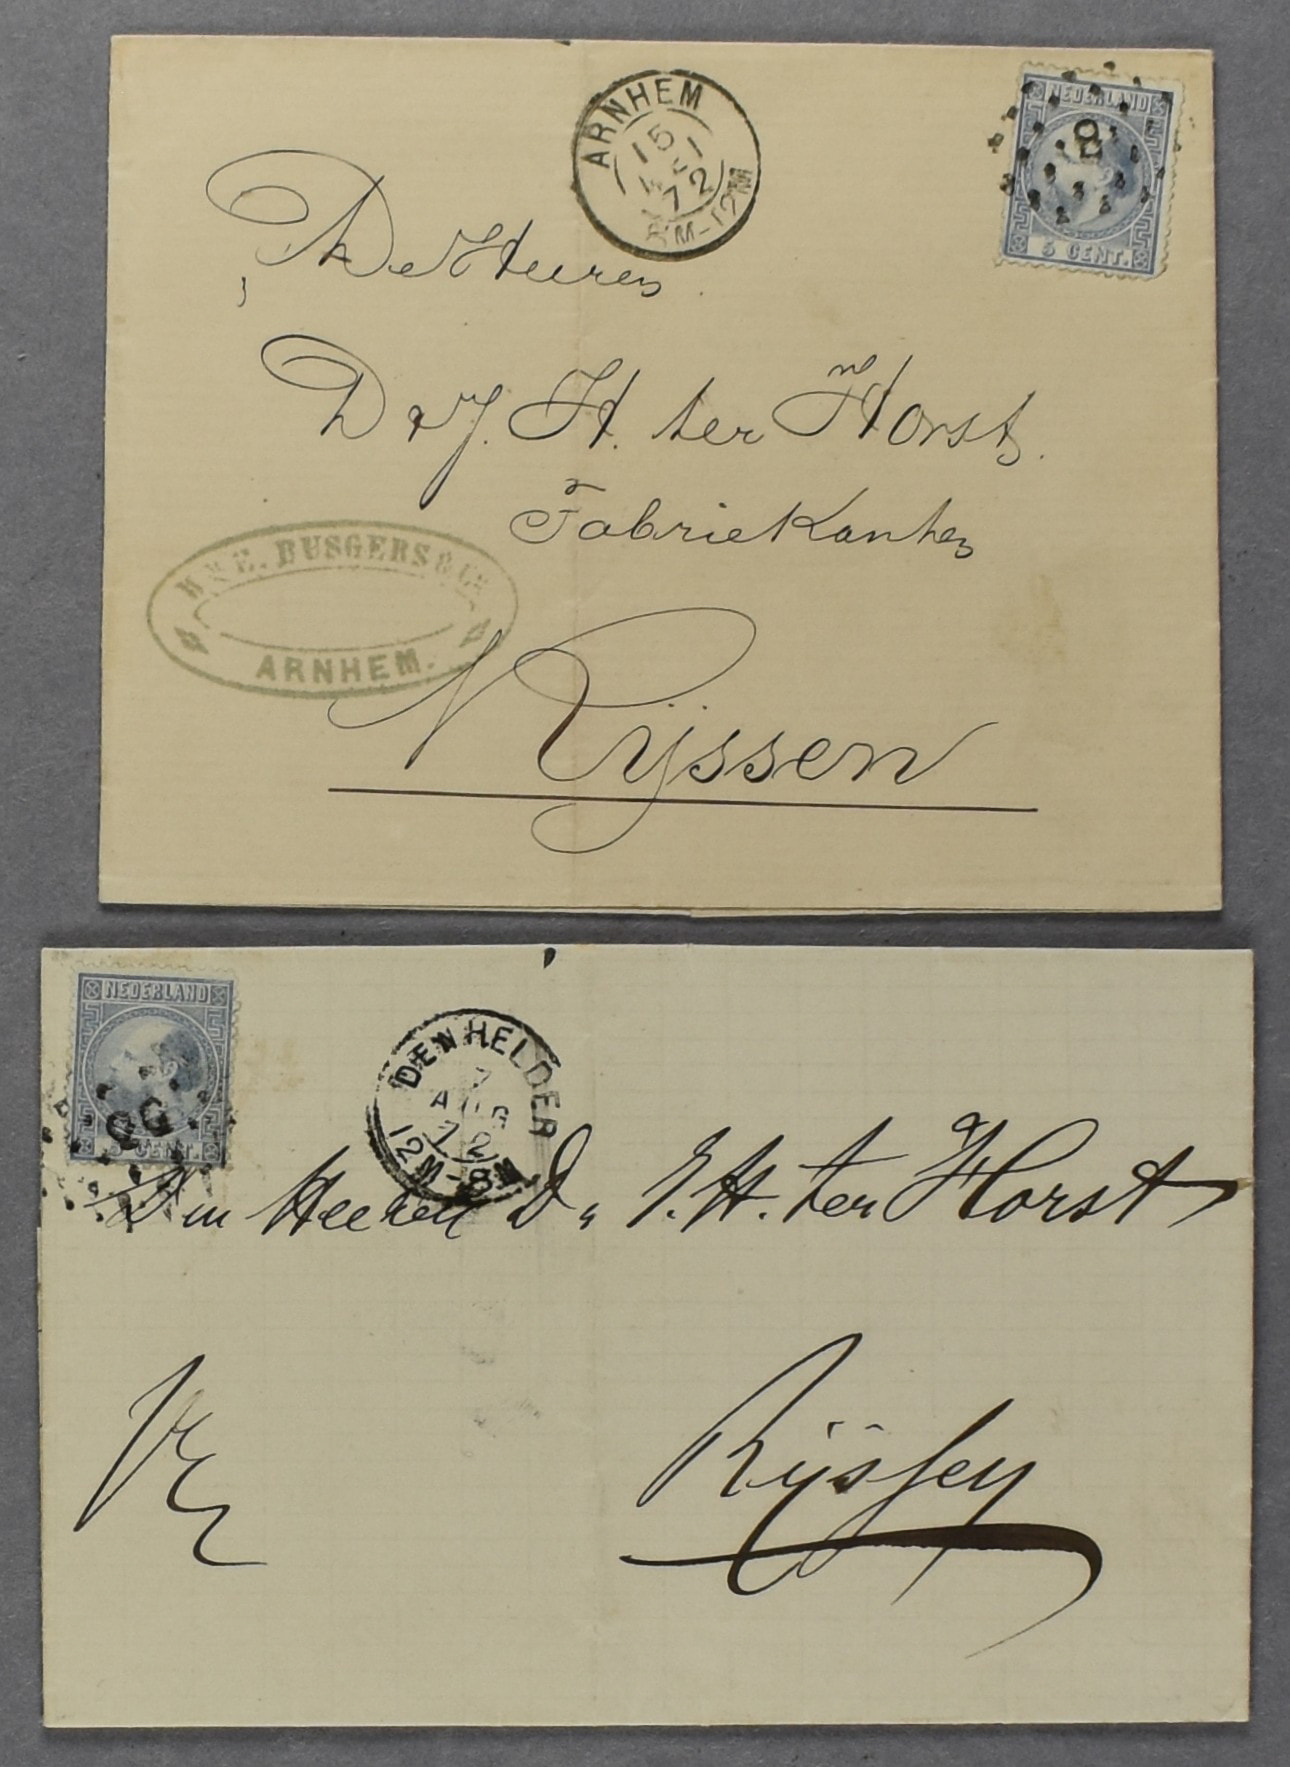 ARNHEM
15 - 1
72
8M-12M
NEDERLAND
8
5 CENT.
De Heeren
D & J. H. ter Horst
Fabriekanten
BUSGERS & Co
ARNHEM.
Rijssen
NEDERLAND
5 CENT.
DEN HELDER
7
AUG
72
12M-8M
Den Heeren D. J. H. ter Horst
Rijssen